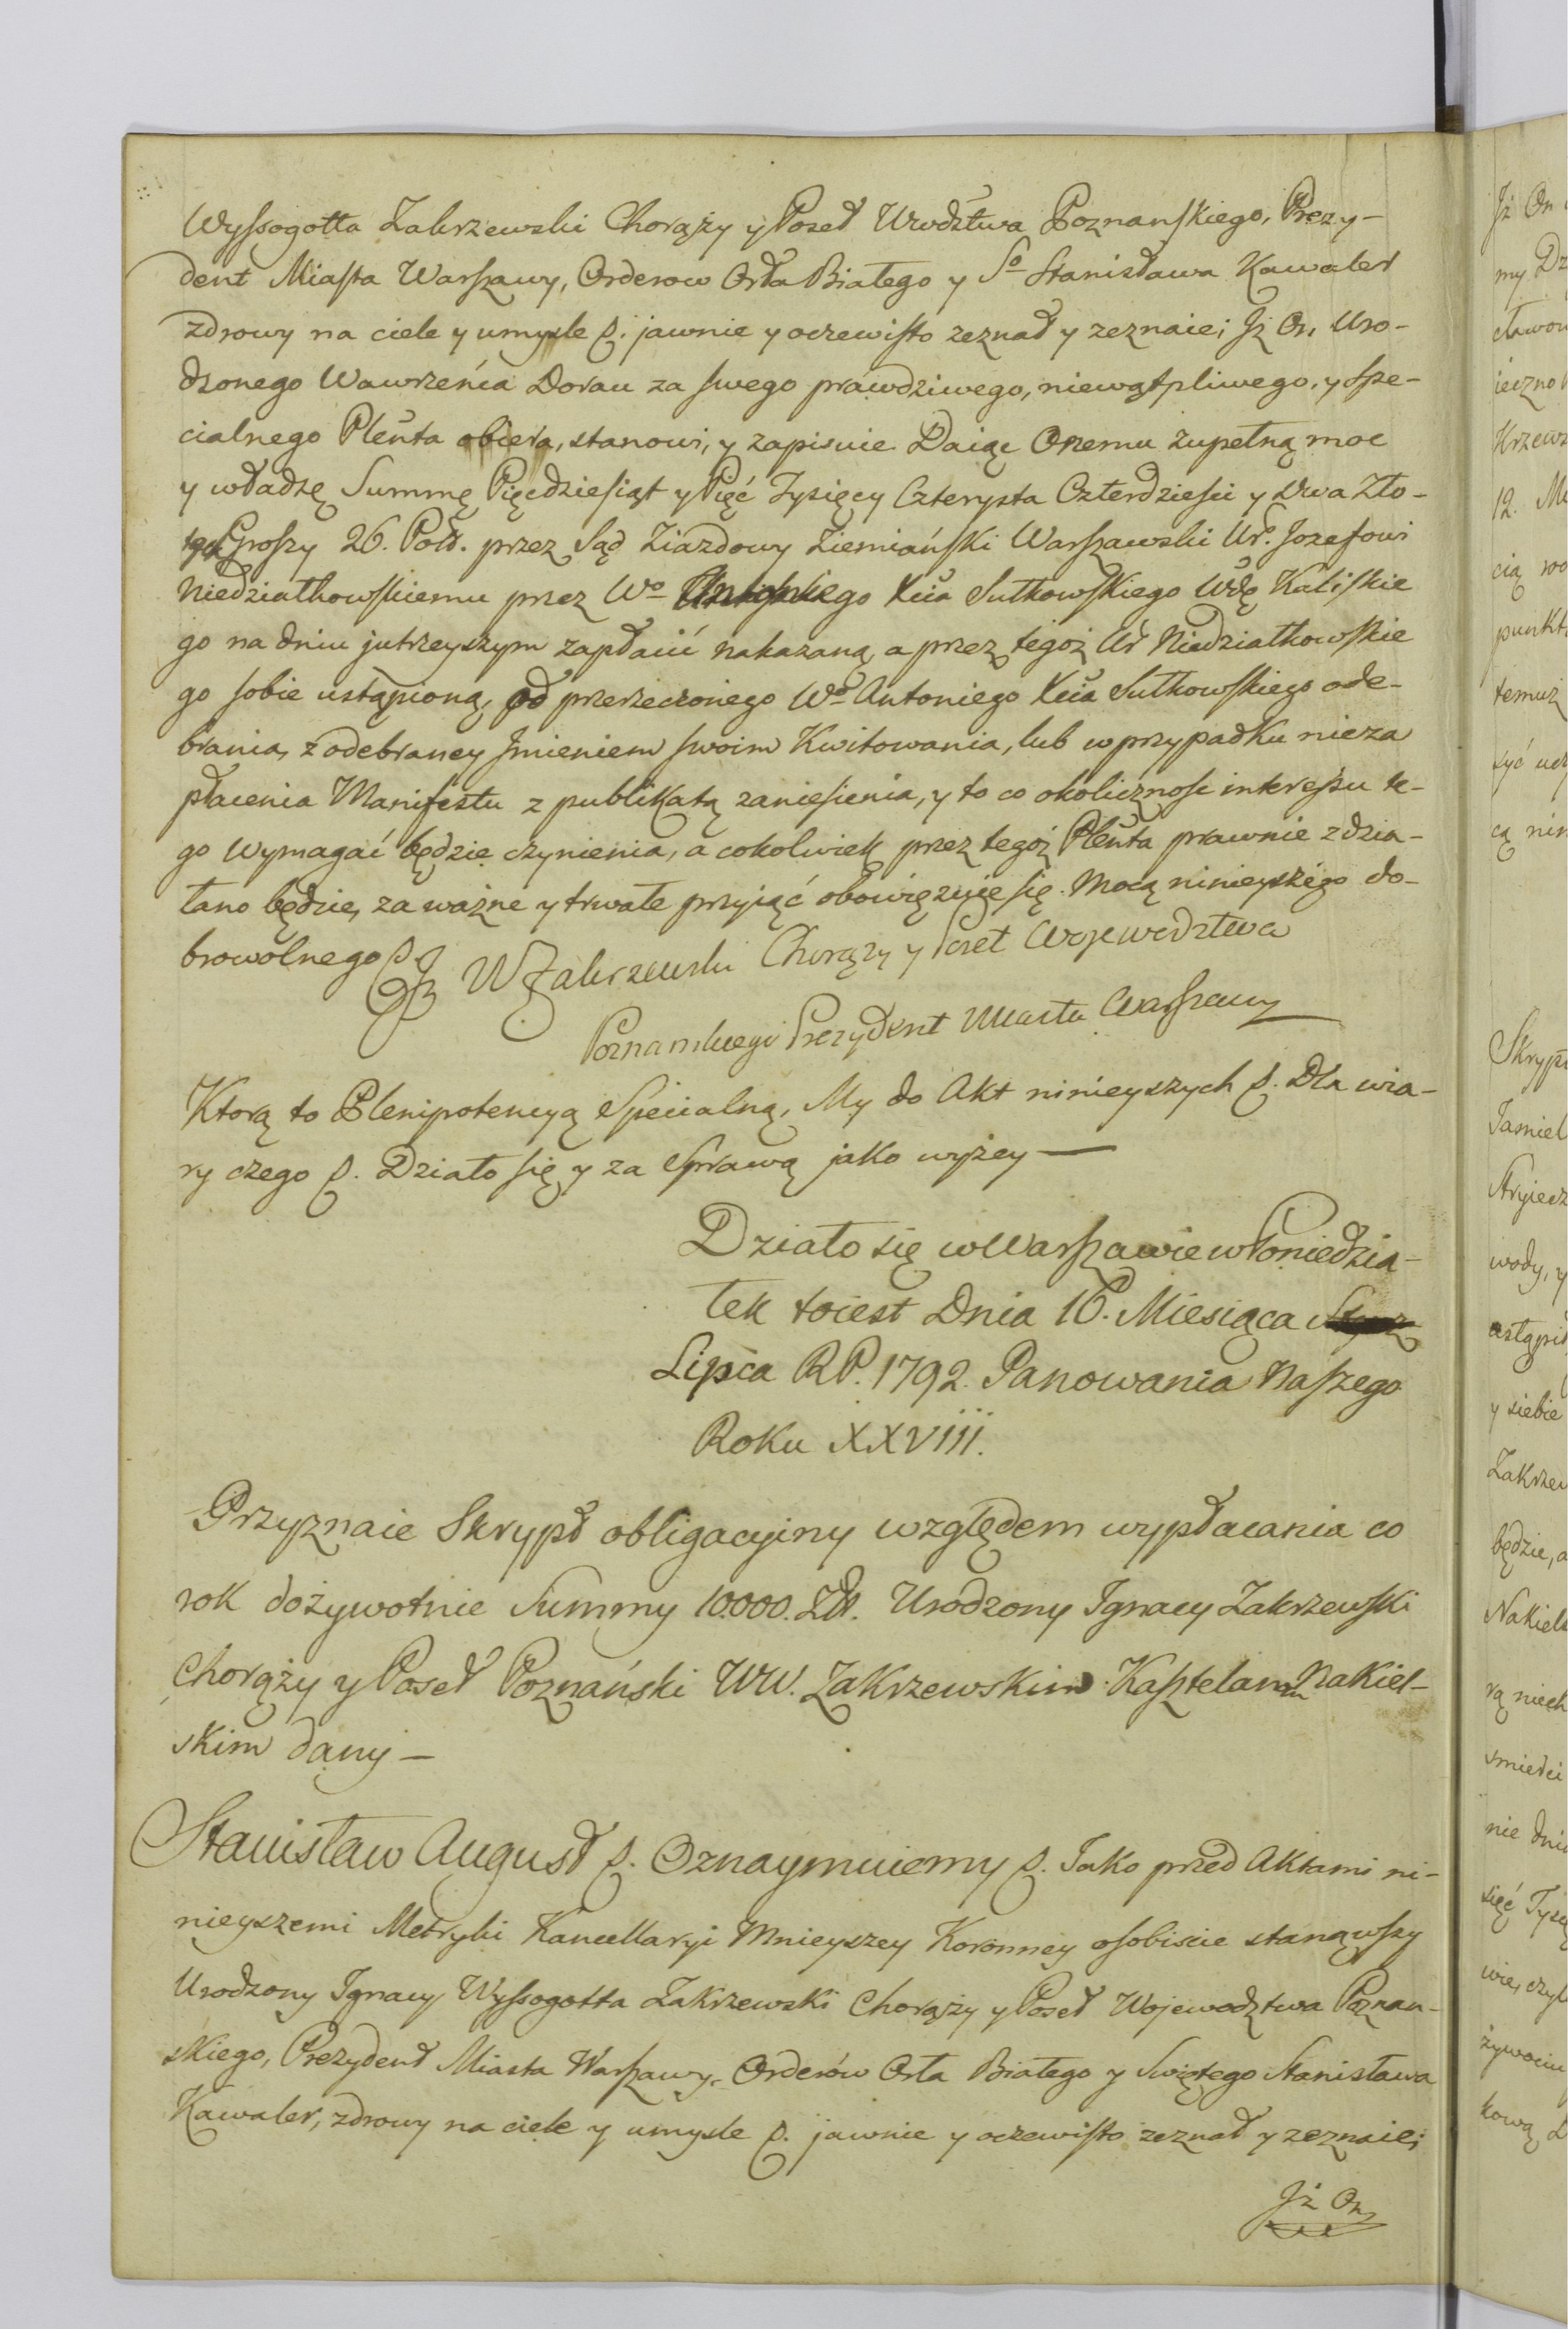 Wyssogotta Zakrzewski Chorąży y Poseł Wwdztwa Poznanskiego, Prezy-
dent Miasta Warszawy, Orderow Orła Białego y So Stanisława Kawaler
zdrowy na ciele y umysle p. jawnie y oczewisto zeznał y zeznaie; Jż On Uro-
dzonego Wawrzeńca Dorau za swego prawdziwego, niewątpliwego, y Spe-
cialnego Pleñta obiera, stanowi, y zapisuie Daiąc Onemu zupełną moc
y władzę Summę Pięcdziesiąt y Pięć Tysięcy Czterysta Czterdziesci y Dwa Zło-
tych Groszy 26. Pols. przez Sąd Ziazdowy Ziemiański Warszawski Ur. Jozefowi
Niedziałkowskiemu przez Wo Antoniego Xcia Sułkowskiego Wdę Kaliskie
go na dniu jutrzeyszym zapłaiić nakazaną, a przez tegoż Ur Niedziałkowskie
go sobie ustąpioną, od przerzeczonego Wo Antoniego Xcia Sułkowskiego ode-
brania, z odebraney Jmieniem swoim Kwitowania, lub w przypadku nieza
płacenia Manifestu z publikatą zaniesienia, y to co okoliczność interessu te-
go wymagać będzie czynienia, a cokolwiek przez tegoż Pleñta prawnie zdzia-
łano będzie, za ważne y trwałe przyiąć obowięzuie się. Mocą ninieyszego do-
browolnego p. W Zakrzewski Chorąży y Poseł Wojewodztwa
Poznanskiego Prezydent Miasta Warszawy
Ktorą to Plenipotencyą Specialną, My do Akt ninieyszych p. Dla wia-
ry czego p. Działo się y za Sprawą jako wyżey —
Działo się w Warszawie w Poniedzia-
łek toiest Dnia 16. Miesiąca
Lipca RP. 1792. Panowania Naszego
Roku XXVIII.
Przyznaie Skrypt obligacyiny względem wypłacania co
rok dożywotnie Summy 10.000. Zł. Urodzony Ignacy Zakrzewski
Chorąży y Poseł Poznański WW. Zakrzewskim Kasztelanom Nakiel-
skim dany —
Stanisław August p. Oznaymuiemy p. Jako przed Aktami ni-
nieyszemi Metryki Kancellaryi Mnieyszey Koronney osobiscie stanąwszy
Urodzony Ignacy Wyssogotta Zakrzewski Chorąży y Poseł Wojewodztwa Poznan-
skiego, Prezydent Miasta Warszawy, Orderów Orła Białego y Swiętego Stanisława
Kawaler, zdrowy na ciele y umysle p. jawnie y oczewisto zeznał y zeznaie;
Jż On